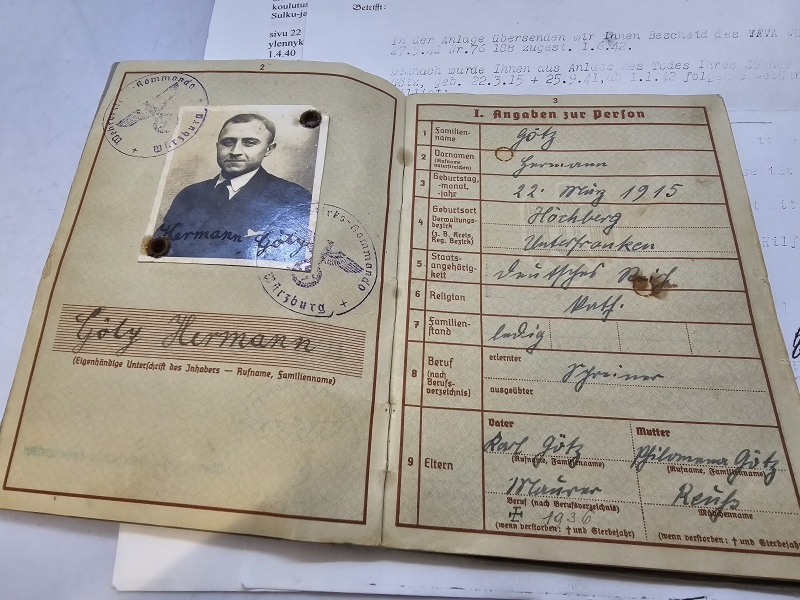 koulutus
Sulku-ja
sivu 22
ylennyk
1.4.40
Betrifft:
In der Anlage übersenden wir Ihnen Bescheid des WFVA
27.5.42 Nr.76 188 zugest. 1.6.42.
Demnach wurde Ihnen aus Anlaß des Todes Ihres
geb. 22.3.15 + 25.9.41, ab 1.1.42
2
Kommando
Würzburg
Hermann Götz
Kommando
Würzburg
Götz Hermann
(Eigenhändige Unterschrift des Inhabers — Rufname, Familienname)
3
I. Angaben zur Person
1 Familien-
name
Götz
2 Vornamen
(Rufname
unterstreichen)
Hermann
3 Geburtstag,
-monat,
-jahr
22. März 1915
4 Geburtsort
Verwaltungs-
bezirk
(z. B. Kreis,
Reg. Bezirk)
Höchberg
Unterfranken
5 Staats-
angehörig-
keit
Deutsches Reich
6 Religion
kath.
7 Familien-
stand
ledig
8 Beruf
(nach
Berufs-
verzeichnis)
erlernter
Schreiner
ausgeübter
9 Eltern
Vater
Karl Götz
(Rufname, Familienname)
Maurer
Beruf (nach Berufsverzeichnis)
+ 1936
(wenn verstorben: † und Sterbejahr)
Mutter
Philomena Götz
(Rufname, Familienname)
Reuß
Mädchenname
(wenn verstorben: † und Sterbejahr)